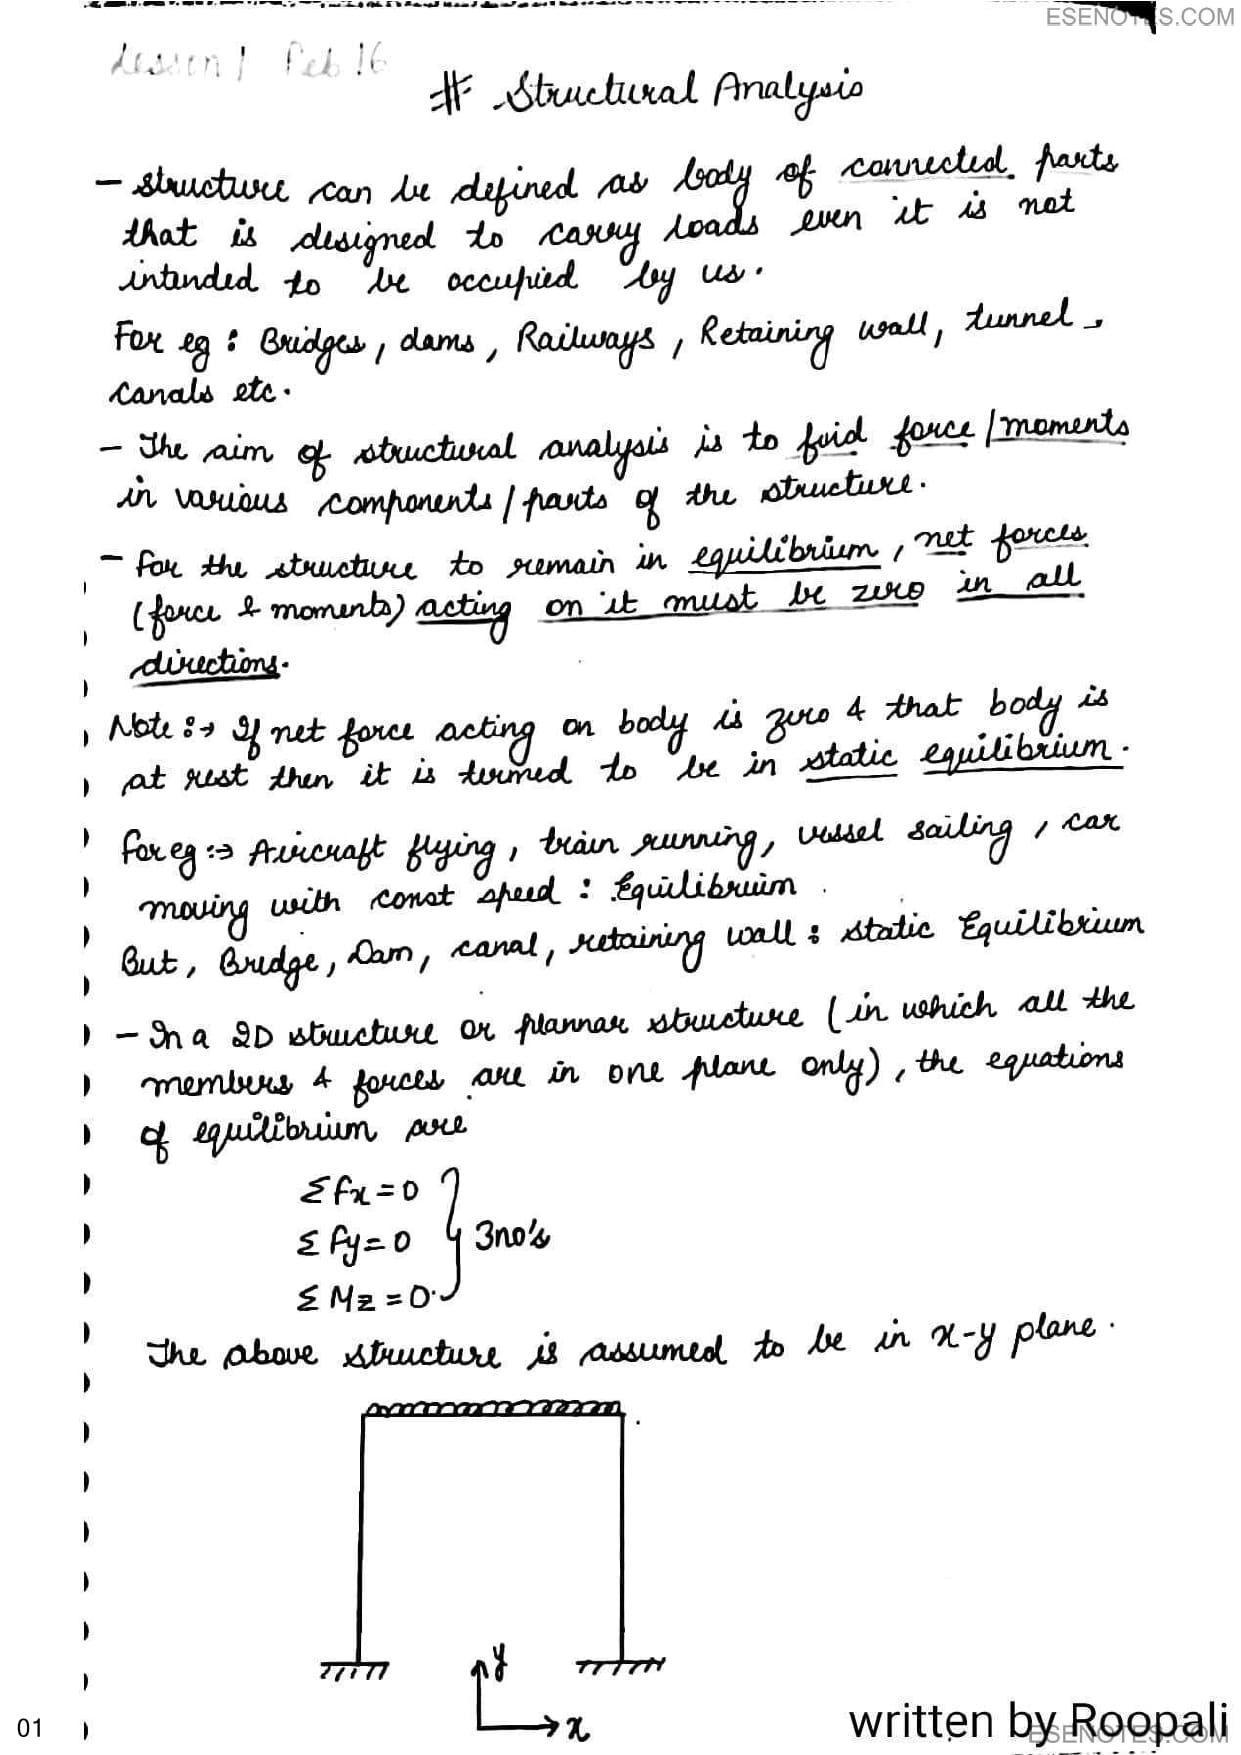 ESENOTES.COM
Lesson 1 Feb 16
# Structural Analysis
- structure can be defined as body of connected parts
that is designed to carry loads even it is not
intended to be occupied by us.
For eg : Bridges, dams, Railways, Retaining wall, tunnel,
canals etc.
- The aim of structural analysis is to find force/moments
in various components/parts of the structure.
- for the structure to remain in equilibrium, net forces
(force & moments) acting on it must be zero in all
directions.
Note :→ If net force acting on body is zero & that body is
at rest then it is termed to be in static equilibrium.
For eg :→ Aircraft flying, train running, vessel sailing, car
moving with const speed : Equilibrium
But, Bridge, Dam, canal, retaining wall : static Equilibrium
- In a 2D structure or plannar structure (in which all the
members & forces are in one plane only), the equations
of equilibrium are
Σfx = 0
Σfy = 0
3no's
ΣMz = 0
The above structure is assumed to be in x-y plane.
y
x
01
written by Roopali
ESENOTES.COM